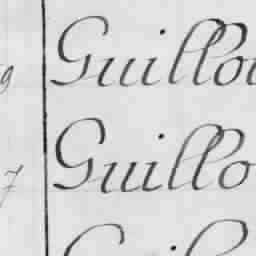 9 Guillo
7 Guillo